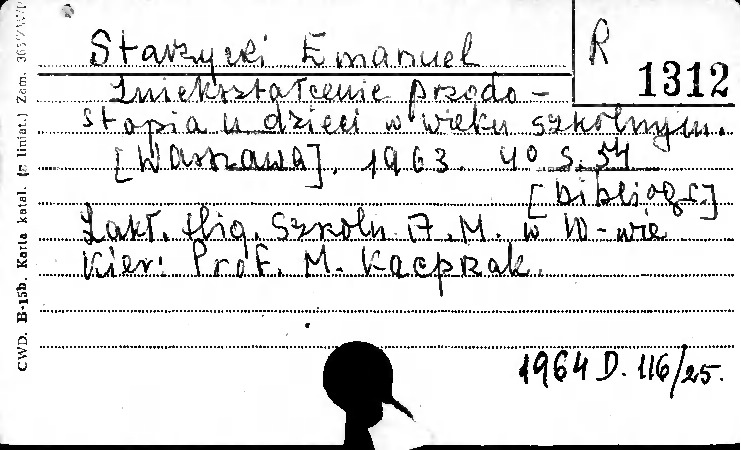 Starzycki Emanuel
R
1312
Zniekształcenie przodo-
stopia u dzieci w wieku szkolnym.
[Warszawa], 1963. 4° s. 54
[bibliogr.]
Zakł. Hig. Szkoln. A.M. w W-wie
Kier: Prof. M. Kacprzak.
1964 D. 116/25.
CWD. B-15b. Karta katal. (z liniat.) Zam.